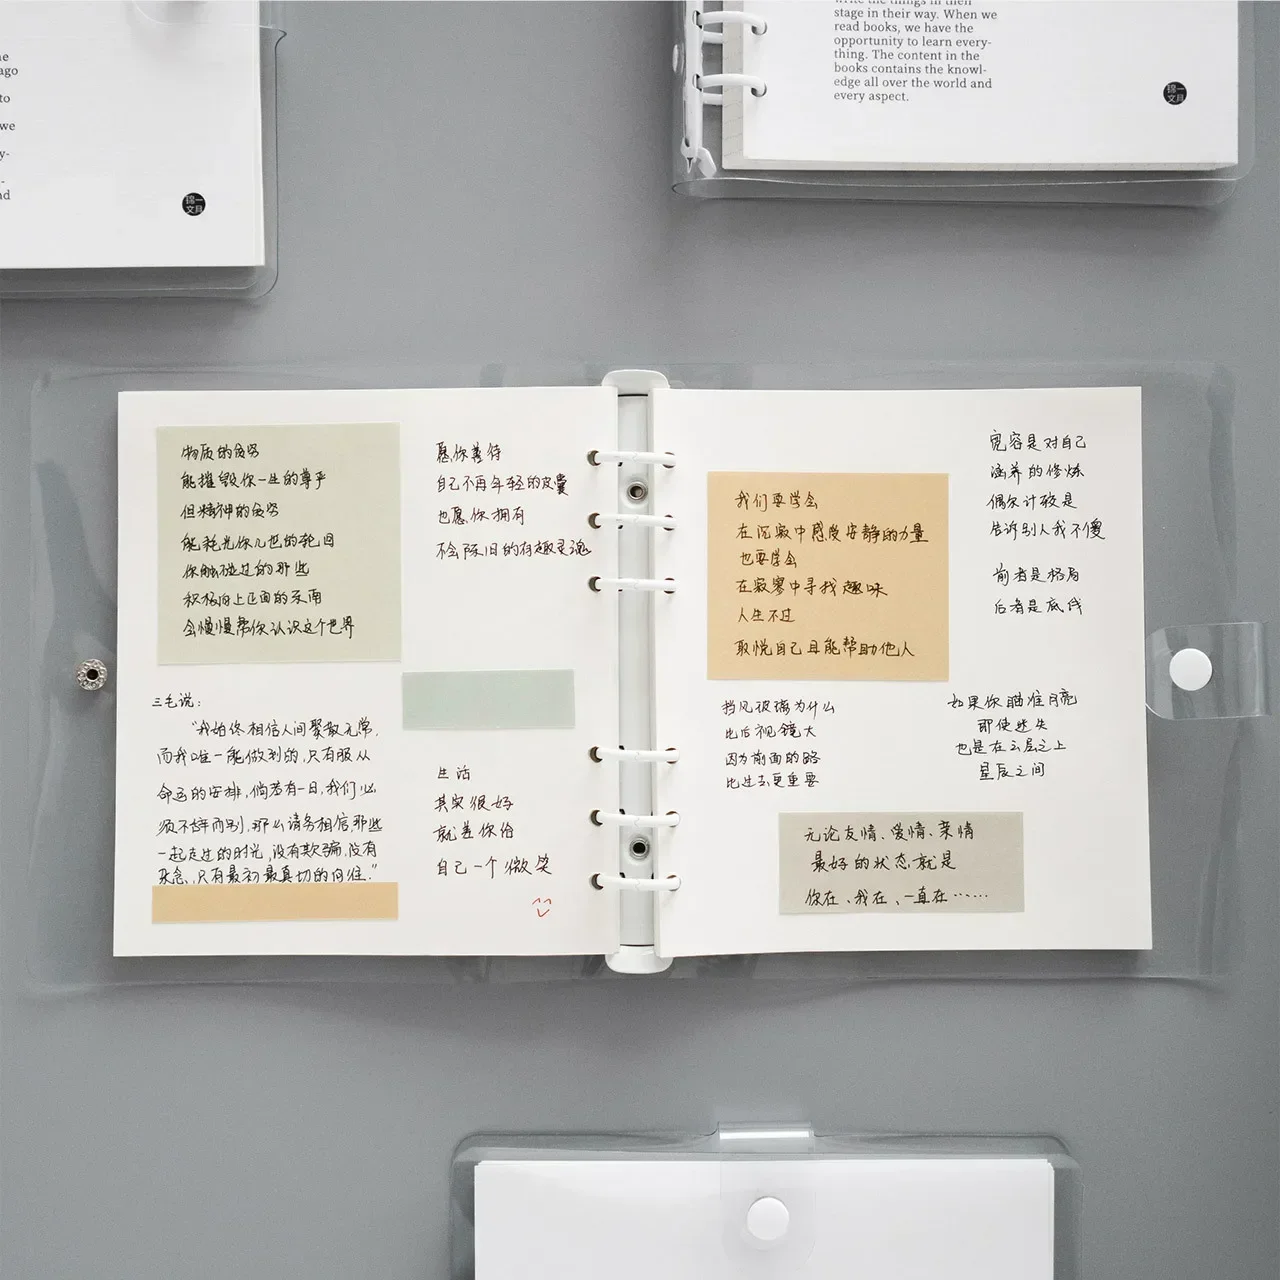 ne
ago
to
we
y-
-
nd
锦一
文具
write the things in their
stage in their way. When we
read books, we have the
opportunity to learn every-
thing. The content in the
books contains the knowl-
edge all over the world and
every aspect.
锦一
文具
物质的贫穷
能摧毁你一生的尊严
但精神的贫穷
能耗光你几世的轮回
你触碰过的那些
积极向上正面的东西
会慢慢帮你认识这个世界
三毛说:
“我始终相信人间聚散无常,
而我唯一能做到的,只有服从
命运的安排,倘若有一日,我们必
须不辞而别,那么请务相信那些
一起走过的时光,没有欺骗,没有
杂念,只有最初最真切的向往.”
愿你善待
自己不再年轻的皮囊
也愿你拥有
不会陈旧的有趣灵魂
生活
其实很好
就差你给
自己一个微笑
我们要学会
在沉寂中感度安静的力量
也要学会
在寂寞中寻找趣味
人生不过
取悦自己且能帮助他人
宽容是对自己
涵养的修炼
偶尔计较是
告诉别人我不傻
前者是格局
后者是底线
挡风玻璃为什么
比后视镜大
因为前面的路
比过去更重要
如果你瞄准月亮
即使迷失
也是在云层之上
星辰之间
无论友情、爱情、亲情
最好的状态就是
你在、我在、一直在……